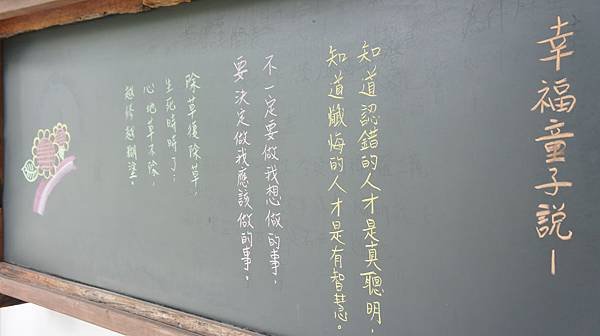 幸福童子說－
知道認錯的人才是真聰明，
知道懺悔的人才是有智慧。
不一定要做我想做的事，
要決定做我應該做的事。
除草獲除草！
生死時時了；
心地草不除，
越修越糊塗。